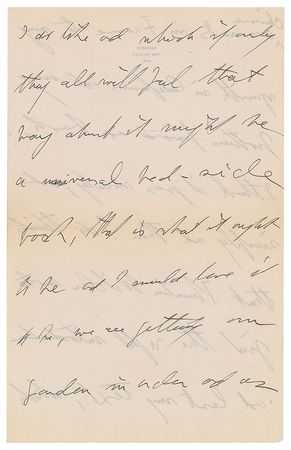 I do like ad which if only
they all will feel that
way about it might be
a universal bed-side
book, that is what it ought
to be ad I would love it
to be, we are getting our
garden in order ad as